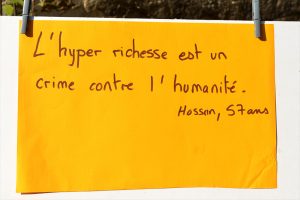 L'hyper richesse est un
crime contre l'humanité.
Hossan, 57ans